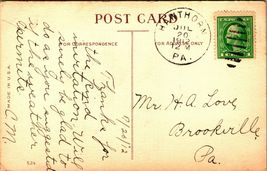 POST CARD
FOR CORRESPONDENCE
FOR ADDRESS ONLY
HAWTHORN
JUL
20
1912
PA.
7/20/12
Thanks for
the kind
invitation. Will
sure be glad to
do as you suggested
if the weather
permits.
C.M.
Mr. H. A. Love,
Brookville,
Pa.
MADE IN U.S.A.